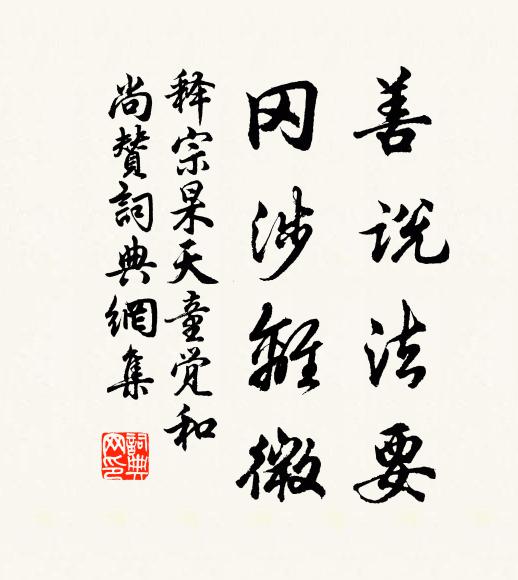 善说法要
罔涉离微
释宗杲天童觉和
尚赞詞典網集
詞典网印